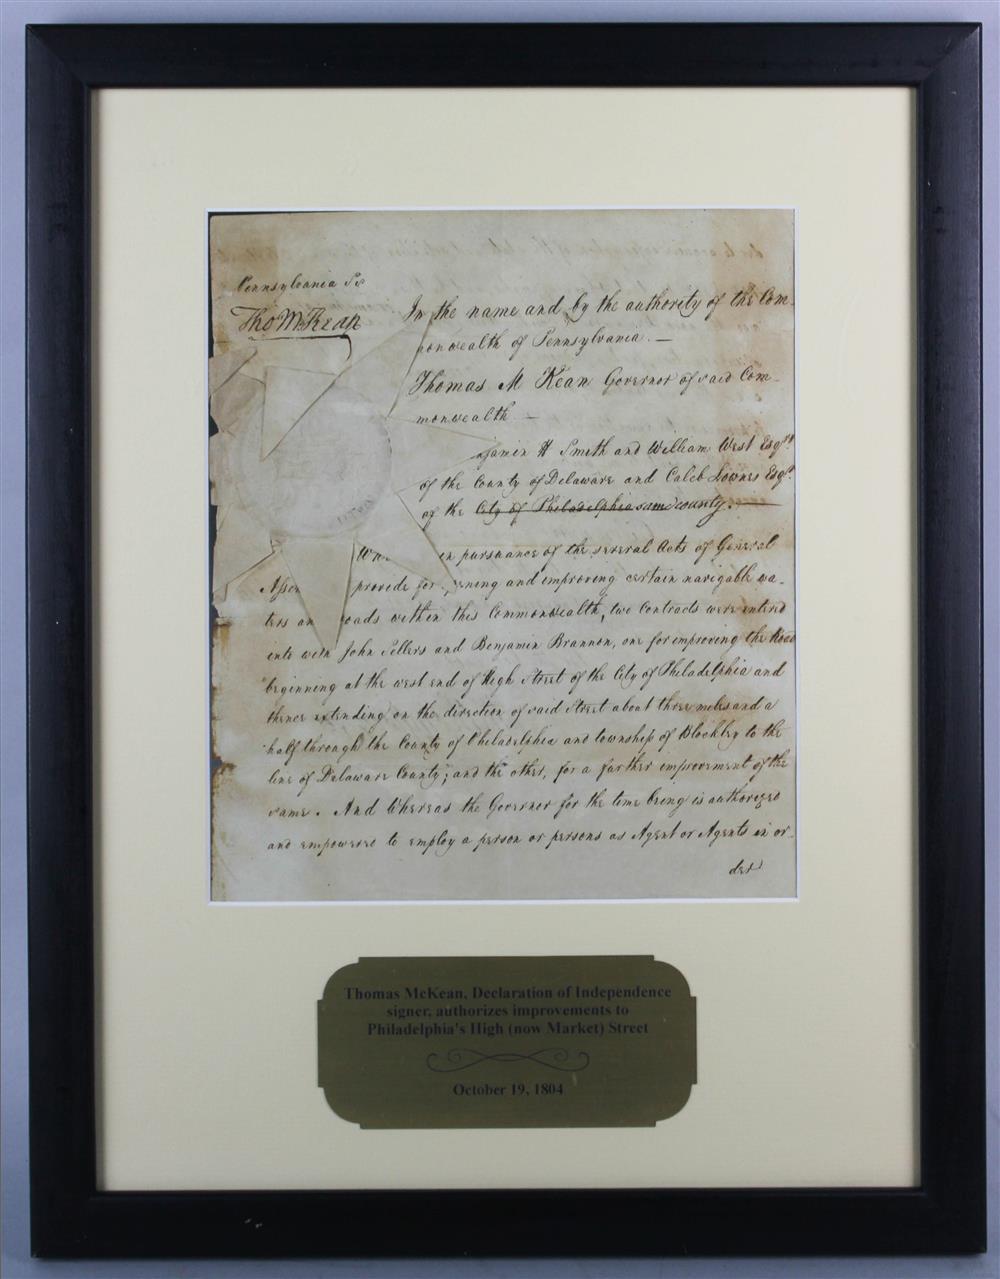 Pennsylvania Ss
Tho M:Kean
In the name and by the authority of the Com-
monwealth of Pennsylvania. —
Thomas M Kean Governor of said Com-
monwealth —
jamin H Smith and William West Esqrs
of the County of Delaware and Caleb Lownes Esqr
of the City of Philadelphia same county.
in pursuance of the several Acts of General
provide for opening and improving certain navigable wa-
ters and roads within this Commonwealth, two Contracts were entered
into with John Sellers and Benjamin Brannon, one for improving the Road
beginning at the west end of High Street of the City of Philadelphia and
thence extending on the direction of said Street about three miles and a
half through the County of Philadelphia and township of Blockley to the
line of Delaware County; and the other, for a further improvement of the
same. And Whereas the Governor for the time being is authorized
and empowered to employ a person or persons as Agent or Agents in or-
der
Thomas McKean, Declaration of Independence
signer, authorizes improvements to
Philadelphia's High (now Market) Street
October 19, 1804